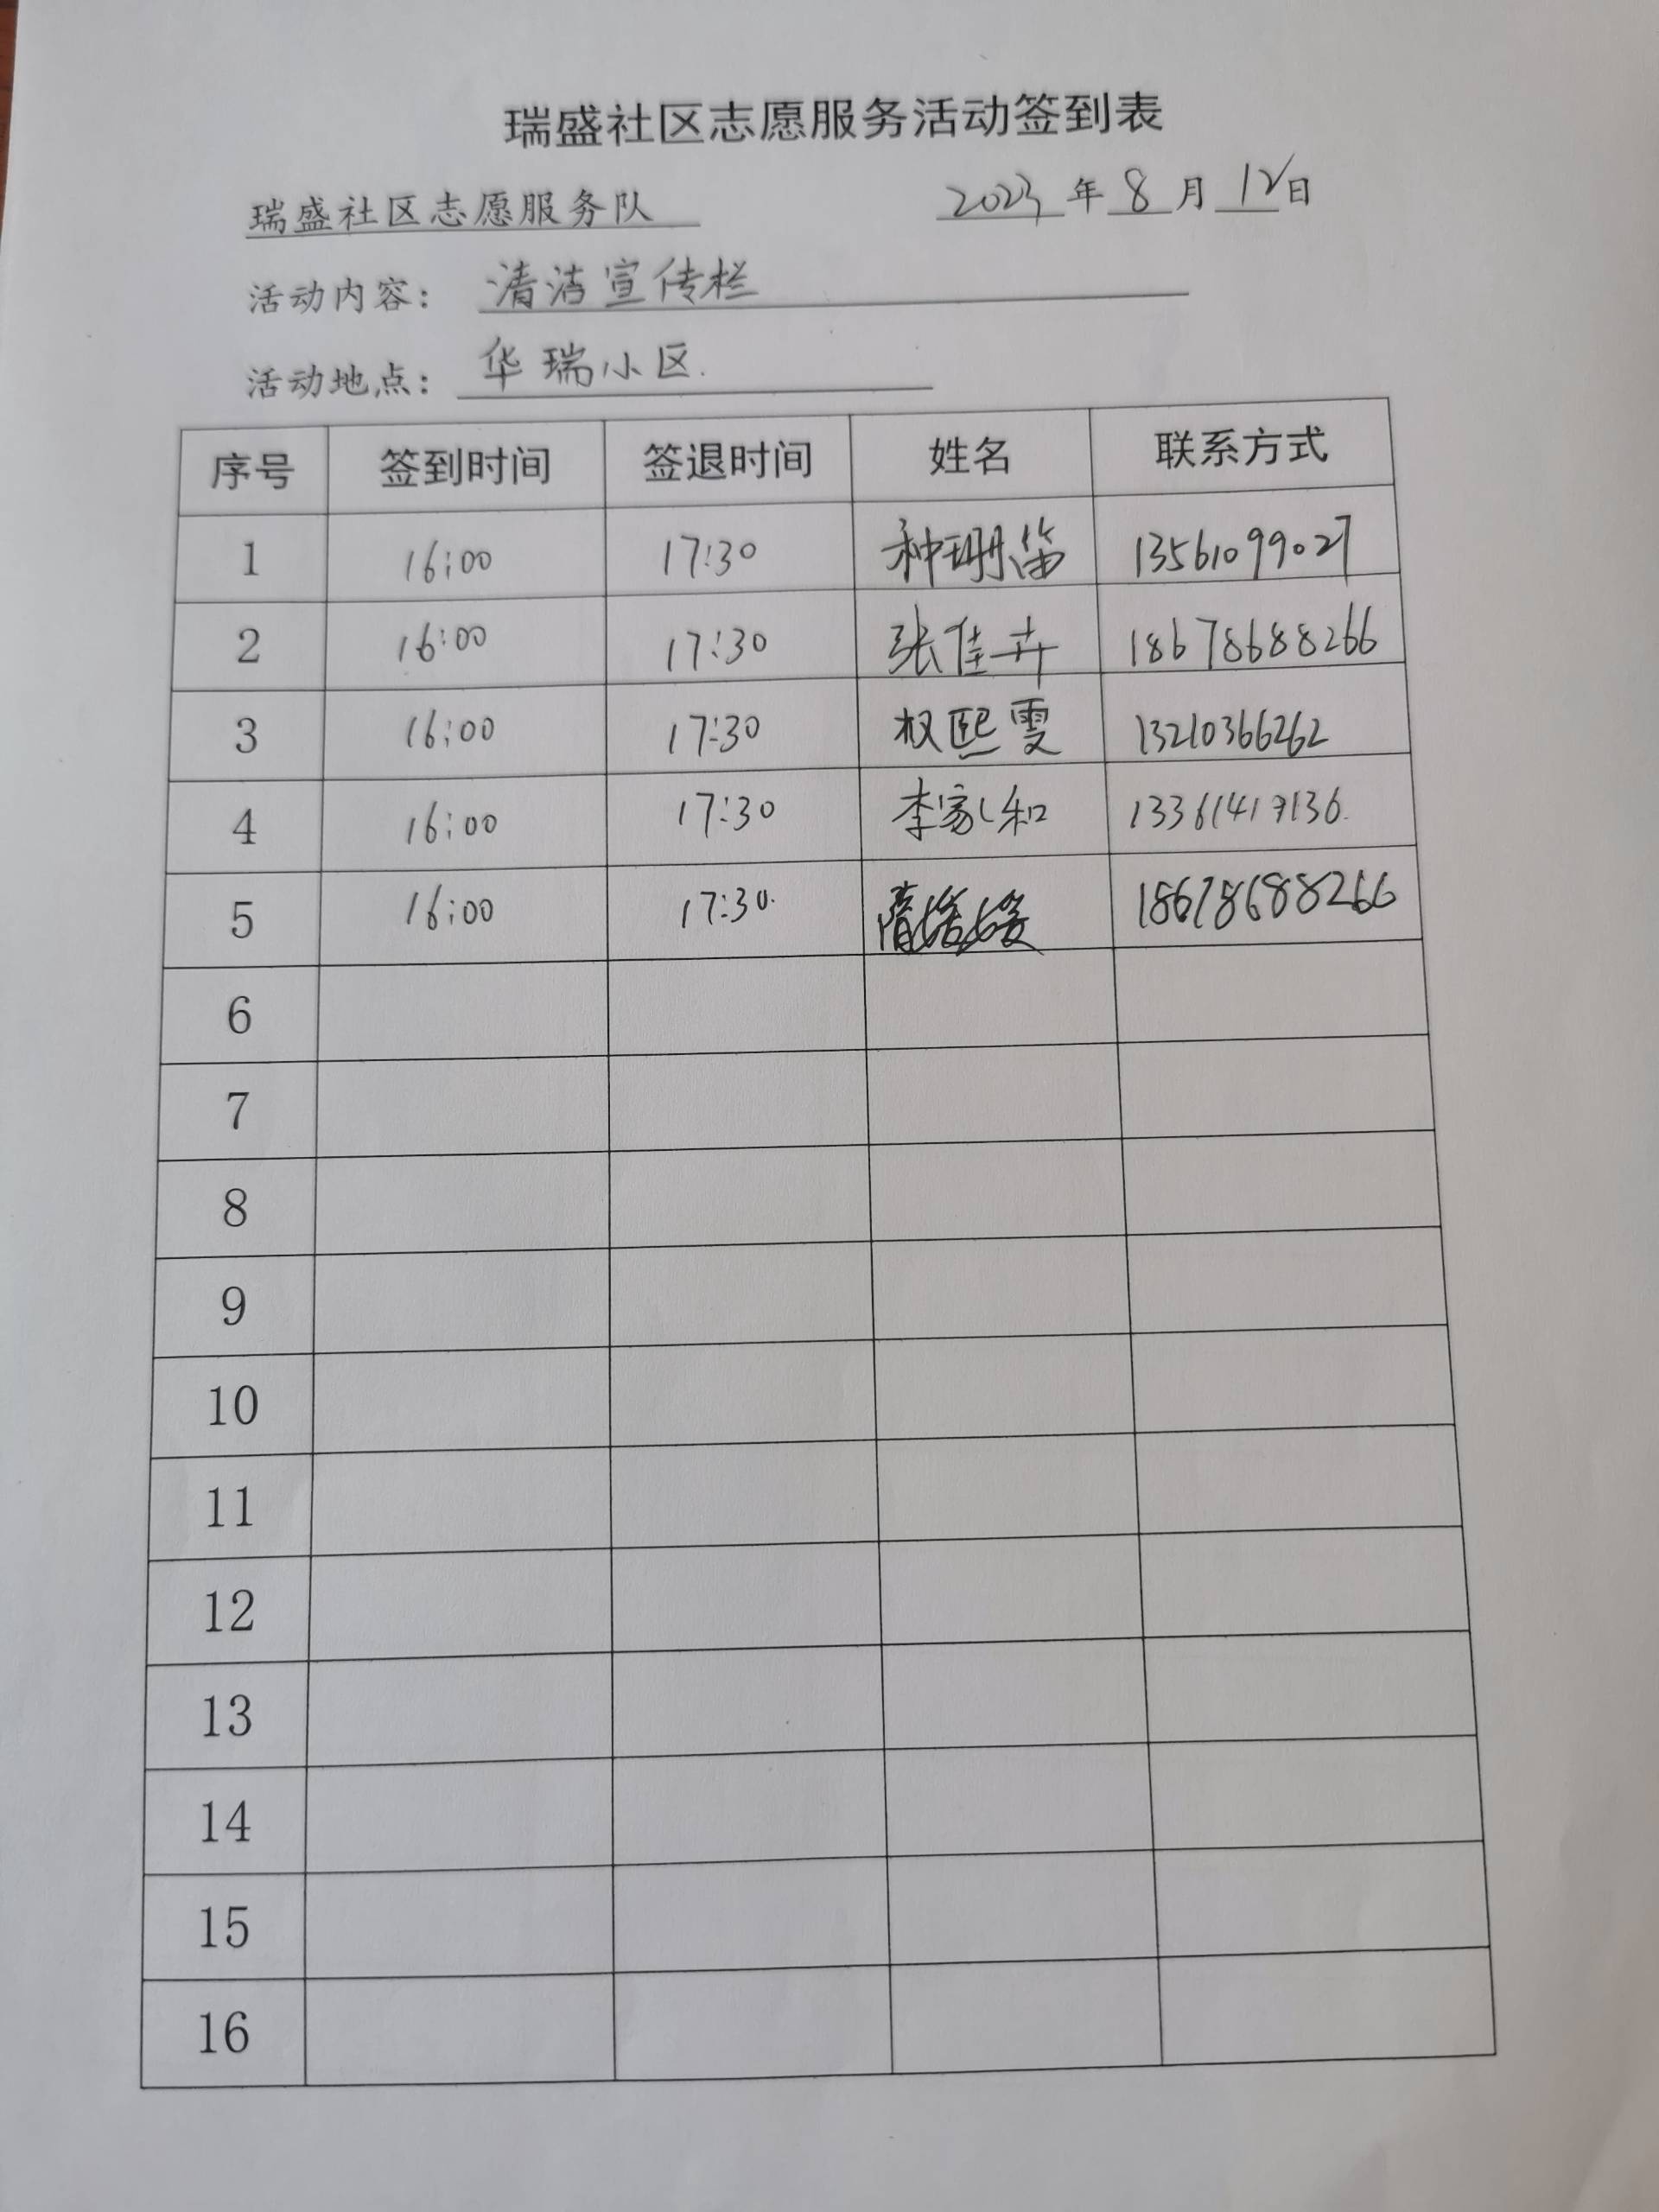 瑞盛社区志愿服务活动签到表
瑞盛社区志愿服务队 2023年8月12日
活动内容：清洁宣传栏
活动地点：华瑞小区.
序号 签到时间 签退时间 姓名 联系方式
1 16:00 17:30 种珊笛 13561099027
2 16:00 17:30 张佳卉 18678688266
3 16:00 17:30 权熙雯 13210366262
4 16:00 17:30 李家和
5 16:00 17:30. 隋 18678688266
6
7
8
9
10
11
12
13
14
15
16